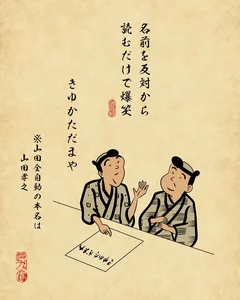 名前を反対から
読むだけで爆笑
きゆかただまや
※山田全自動の本名は
山田孝之